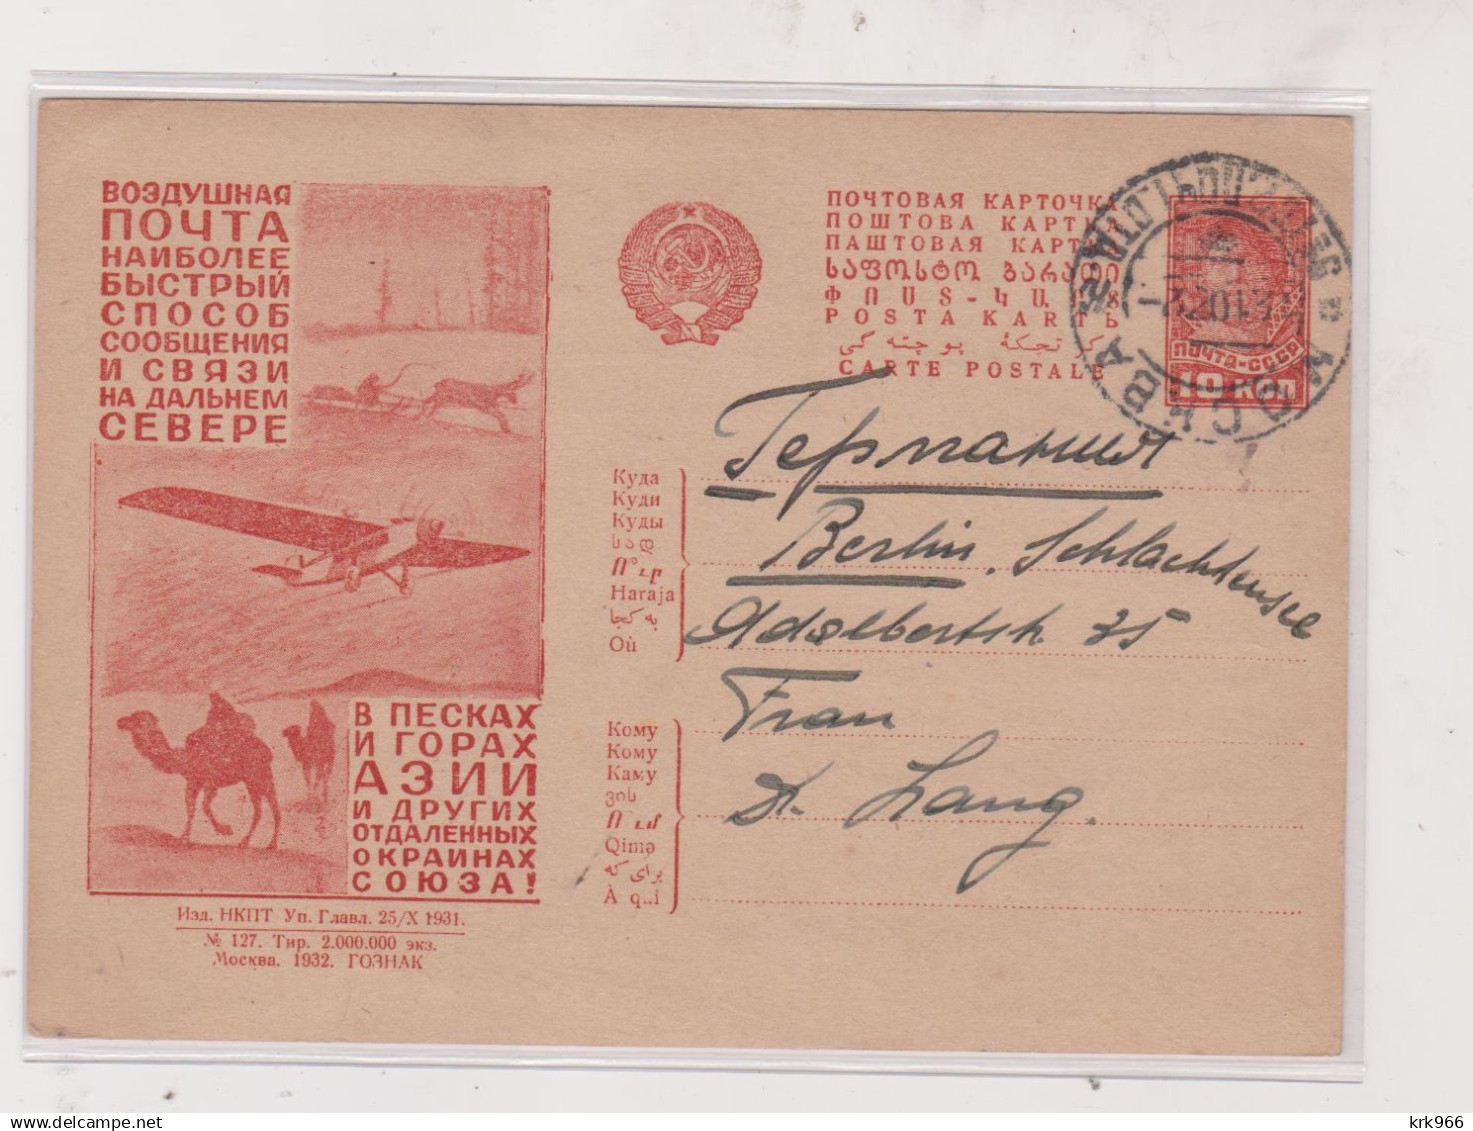 ВОЗДУШНАЯ
ПОЧТА
НАИБОЛЕЕ
БЫСТРЫЙ
СПОСОБ
СООБЩЕНИЯ
И СВЯЗИ
НА ДАЛЬНЕМ
СЕВЕРЕ
В ПЕСКАХ
И ГОРАХ
АЗИИ
И ДРУГИХ
ОТДАЛЕННЫХ
ОКРАИНАХ
СОЮЗА!
Изд. НКПТ Уп. Главл. 25/X 1931.
№ 127. Тир. 2.000.000 экз.
Москва. 1932. ГОЗНАК
ПОЧТОВАЯ КАРТОЧКА
ПОШТОВА КАРТКА
ПАШТОВАЯ КАРТКА
ՓՈՍՏ-ՔԱՐՏ
POSTA KARTЬ
CARTE POSTALE
ПОЧТА-СССР
10 КОП
МОСКВА
Германия
Berlin, Schlachtensee
Adalbertstr. 35
Frau
Dr. Lang.
Куда
Куди
Куды
სად
Haraja
به کجا
Où
Кому
Кому
Каму
ვის
Qimə
برای که
À qui
krk966